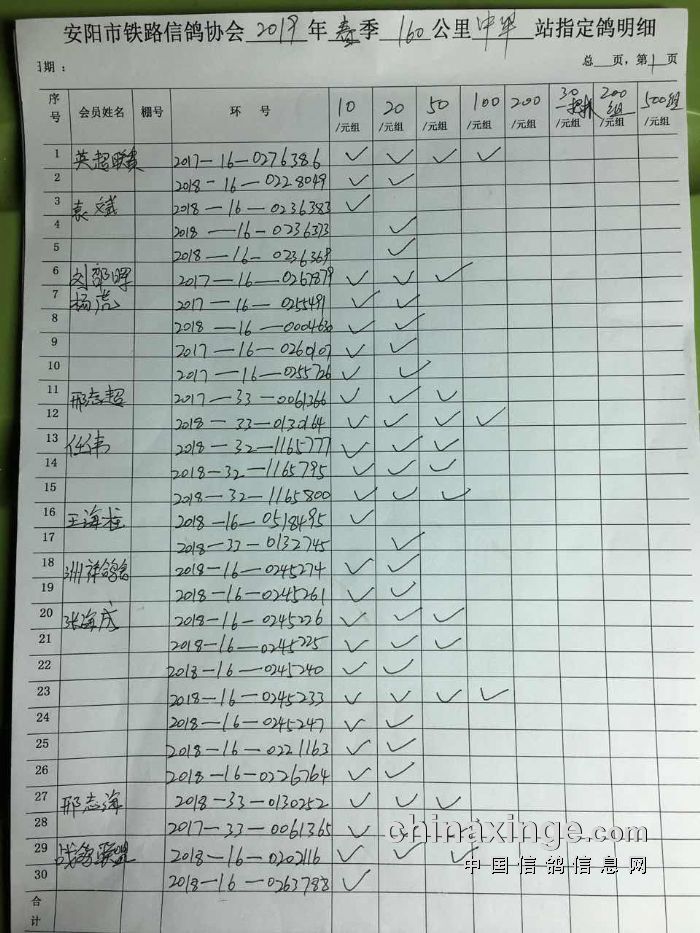 安阳市铁路信鸽协会2019年春季160公里中华站指定鸽明细
日期： 总 页，第1页
序号 会员姓名 棚号 环 号 10/元组 20/元组 50/元组 100/元组 200/元组 30/元组 200组/元组 500组/元组
1 英超联赛 2017-16-0276386 ✓ ✓ ✓ ✓
2 2018-16-0228049 ✓ ✓
3 袁斌 2018-16-0236383 ✓
4 2018-16-0236373 ✓
5 2018-16-0236369 ✓
6 刘邵晖 2017-16-0267879 ✓ ✓ ✓
7 杨虎 2017-16-0255491 ✓ ✓
8 2018-16-0004630 ✓ ✓
9 2017-16-0260107 ✓ ✓
10 2017-16-0255726 ✓ ✓
11 邢志超 2017-33-0061366 ✓ ✓ ✓
12 2018-33-0130164 ✓ ✓ ✓ ✓
13 任伟 2018-32-1165777 ✓ ✓ ✓
14 2018-32-1165795 ✓ ✓ ✓
15 2018-32-1165800 ✓ ✓ ✓
16 王海柱 2018-16-0518495 ✓
17 2018-33-0132745 ✓
18 洲祥鸽舍 2018-16-0245274 ✓ ✓
19 2018-16-0245261 ✓ ✓
20 张海成 2018-16-0245226 ✓ ✓ ✓
21 2018-16-0245225 ✓ ✓ ✓
22 2018-16-0245240 ✓ ✓
23 2018-16-0245233 ✓ ✓ ✓ ✓
24 2018-16-0245247 ✓ ✓
25 2018-16-0221163 ✓ ✓
26 2018-16-0226764 ✓ ✓
27 邢志海 2018-33-0130252 ✓ ✓ ✓
28 2017-33-0061365 ✓ ✓
29 战鸽联盟 2018-16-0202116 ✓ ✓ ✓
30 2018-16-0263788 ✓
合计
chinaxinge.com
中国信鸽信息网